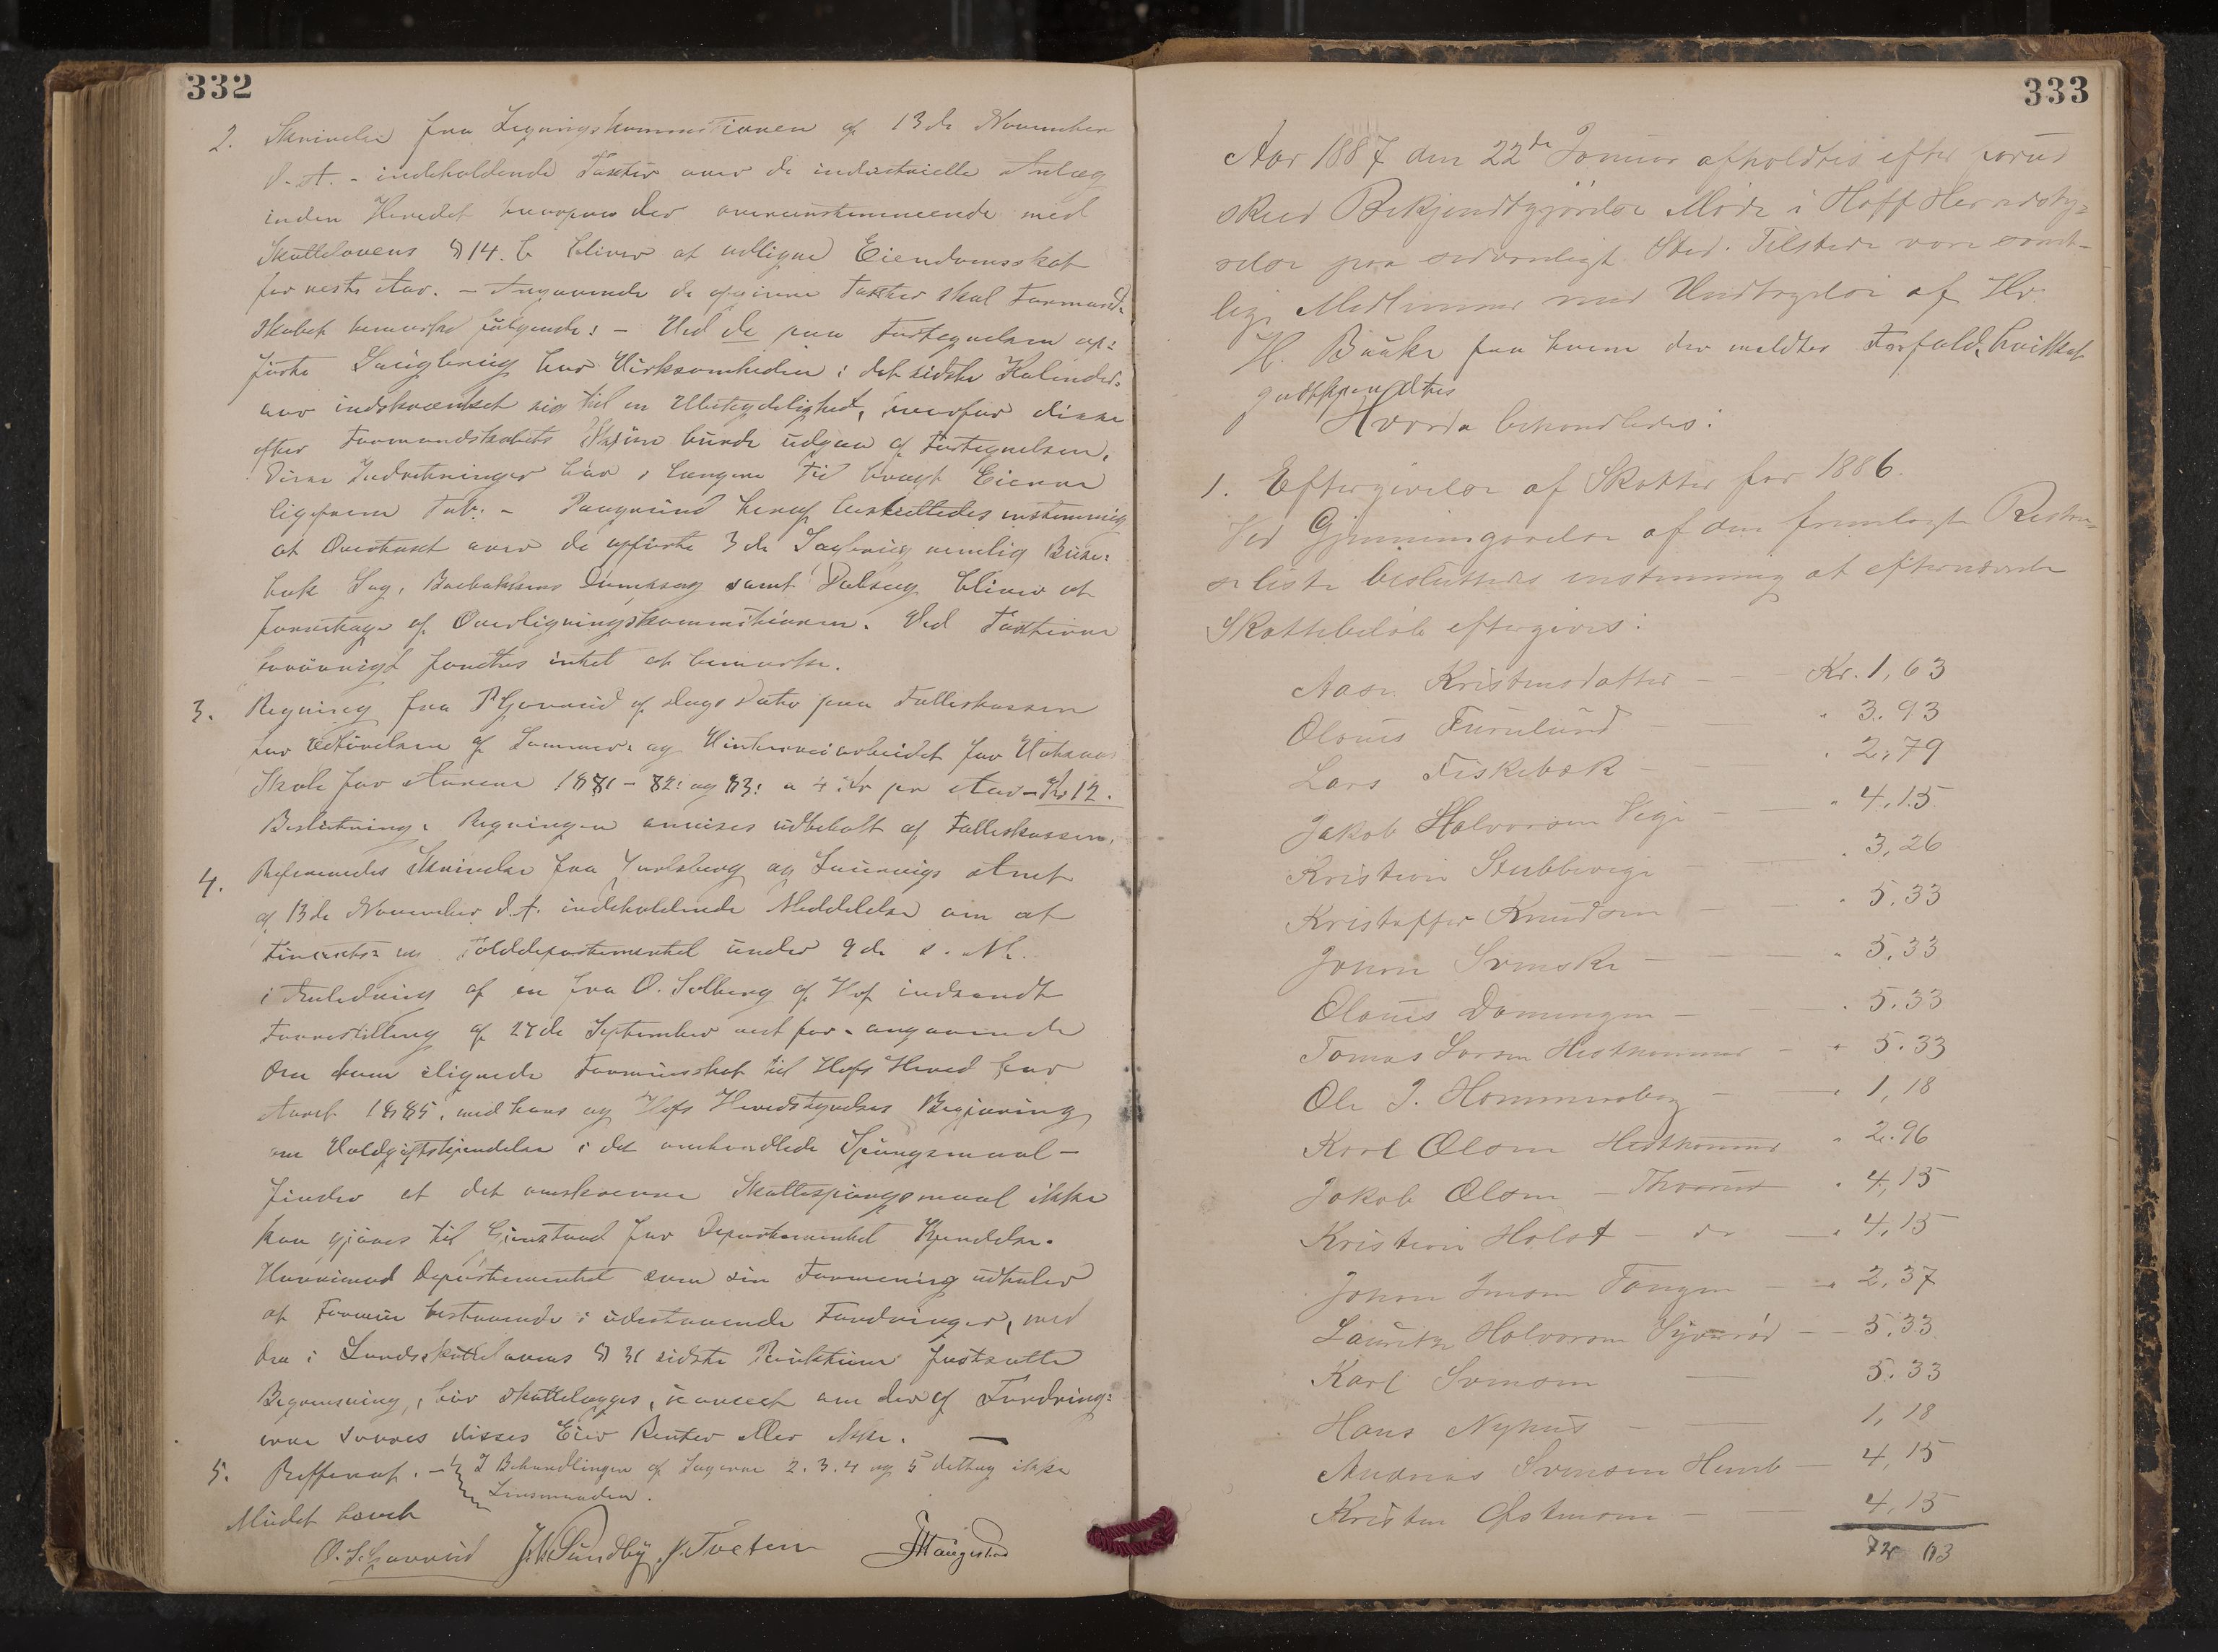 332
2. Skrivelse fra Ligningskommissionen af 13de November
d. A. - indeholdende Taxter over de industrielle Anlæg
inden Herredet hvorpaa der overensstemmende med
Skattelovens § 14. b bliver at udligne Eiendomsskat
for neste Aar. - Angaaende de opgivne Taxter skal Formand-
skabet bemærke følgende: - Ved de paa Fortegnelsen op-
førte Saugbrug har Virksomheden i det sidste Kalender-
aar indskrænket sig til en Ubetydelighed, hvorfor disse
efter Formandskabets Skjøn burde udgaa af Fortegnelsen.
Disse Indretninger har i længere Tid bragt Eierne
ligefrem Tab. - Paagrund heraf besluttedes enstemmig
at Overtaxt over de opførte 3de Sagbrug nemlig
Sag, samt bliver at
foretage af Overligningskommissionen. Ved Taxterne
forøvrigt fandtes intet at bemærke.
3. Regning fra af Dags Dato paa Fælleskassen
for af Sommer- og Vinterveiarbeidet for
Skole for Aarene 1881 - 82: og 83: a 4 Kr pr Aar - Kr 12.
Beslutning: Regningen anvises udbetalt af Fælleskassen.
4. Refereredes Skrivelse fra Jarlsberg og Laurvigs Amt
af 13de November d. A. indeholdende Meddelelse om at
Finants- og Tolddepartementet under 9de s. M.
i Anledning af en fra O. Solberg af Hof indsendt
Forestilling af 27de September nest før - angaaende
den ham ilignede Formuesskat til Hofs Herred for
Aaret 1885, med hans og Hofs Herredstyrelses Begjæring
om Voldgiftskjendelse i det omhandlede Spørgsmaal -
finder at det omskrevne Skattespørgsmaal ikke
kan gjøres til Gjenstand for Departementets Kjendelse.
Hvorimod Departementet som sin Formening udtaler
at Formue bestaaende i udestaaende Fordringer, med
den i Landsskattelovens § 31 sidste Punktum fastsatte
Begrænsning, bør skattelægges, uanseet om der af Fordring-
erne svares disses Eier Renter eller ikke.
5. Refferat. - I Behandlingen af Sagerne 2. 3. 4 og 5 deltog ikke
Lensmanden.
Mødet hævet
J. N. Sundby P. Tveten J Haugestad
333
Aar 1887 den 22de Januar afholdtes efter forud
skeed Bekjendtgjørelse Møde i Hoff Herredsty-
relse paa sedvanligt Sted. Tilstede vare samt-
lige Medlemmer med Undtagelse af Hr.
H. Baake fra hvem der meldtes Forfald, hvilket
godkjendtes
Hvorda behandledes:
1. Eftergivelse af Skatter for 1886.
Ved Gjennemgaaelse af den fremlagte Restan-
seliste besluttedes enstemmig at efternævnte
Skattebeløb eftergives:
Aase Kristensdatter - - - Kr. 1,63
Olaus Furulund - - " 3.93
Lars Fiskebæk - - " 2,79
Jakob Halvorsen Vegi - - " 4,15
Kristian Stubbevegi - - " 3,26
Kristoffer Knudsen - - " 5.33
Johan Svenske - - " 5.33
Olaus Damengen - - " 5.33
Tomas Larsen Hestkommer - " 5.33
Ole J. Hammersberg - - " 1,18
Karl Olsen Hestkommer " 2.96
Jakob Olsen - " 4,15
Kristian Holst - do - " 4,15
Johan Tangen - " 2,37
Lauritz Halvorsen - 5.33
Karl Svensen - 5.33
Hans Nyhus - - 1,18
Andreas Svensen - 4,15
Kristen Østensen - - 4,15